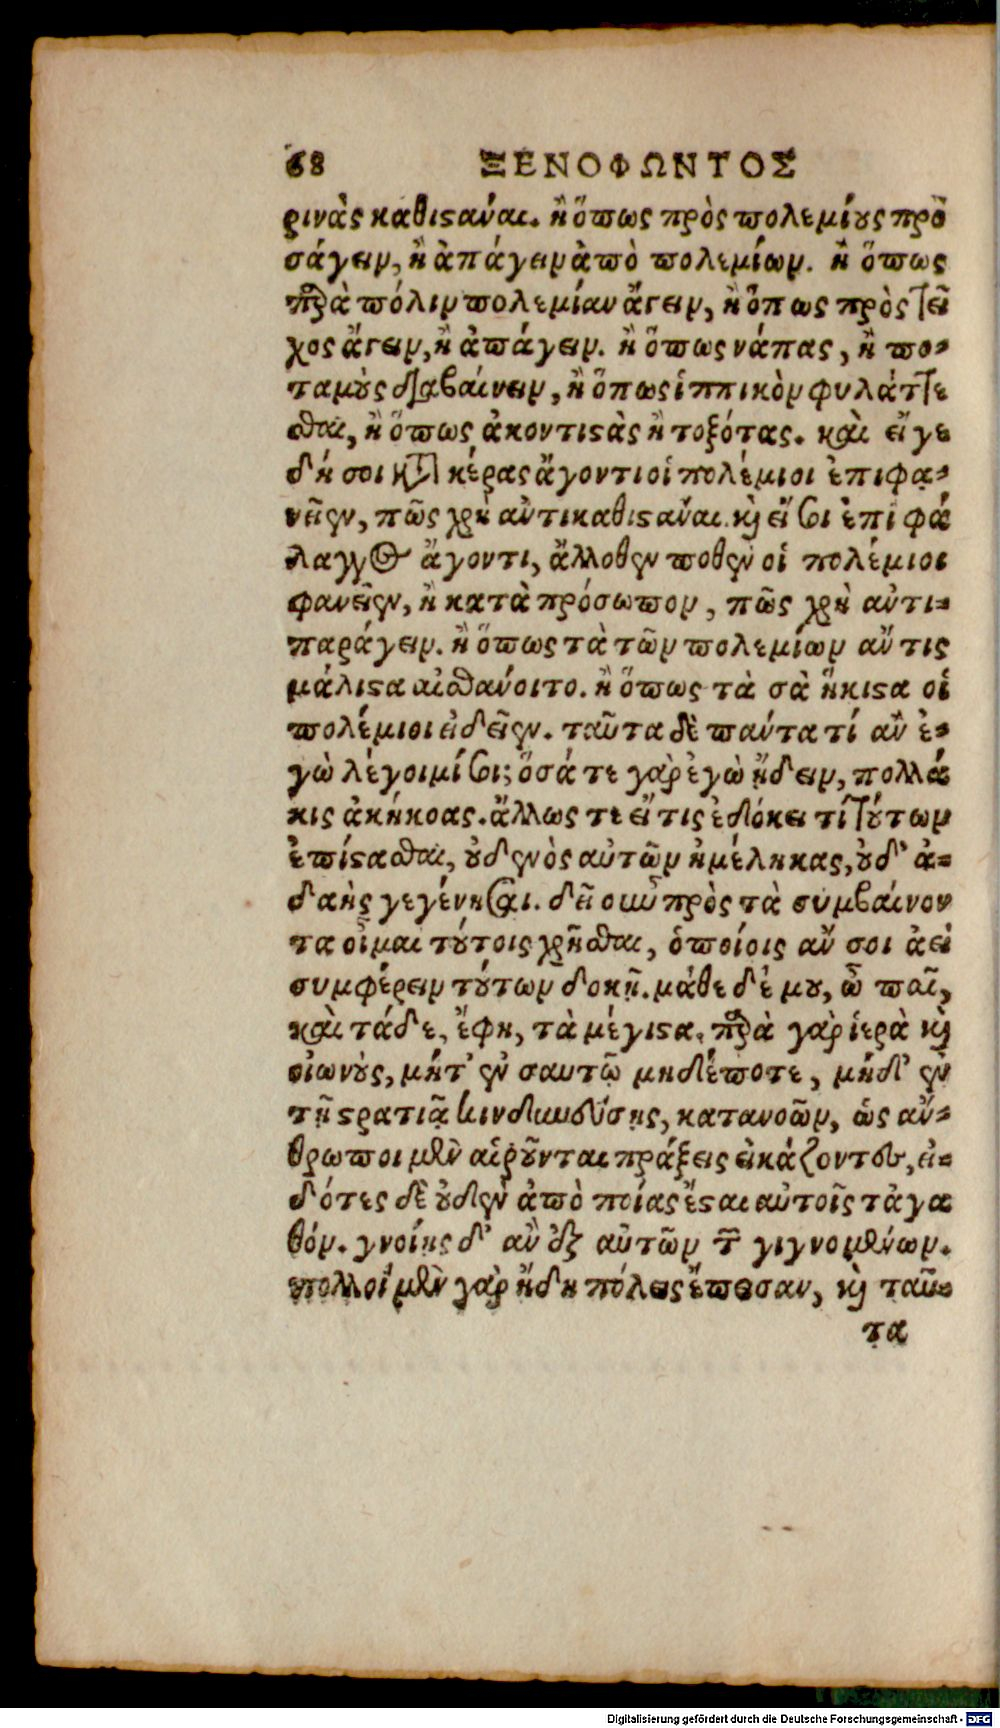 68 ΞΕΝΟΦΩΝΤΟΣ
ρινὰς καθιϛάναι. ἢ ὅπως πρὸς πολεμίους πρὸ
σάγειν, ἢ ἀπάγειν ἀπὸ πολεμίων. ἢ ὅπως
παρὰ πόλιν πολεμίαν ἄγειν, ἢ ὅπως πρὸς τεῖ
χος ἄγειν, ἢ ἀπάγειν. ἢ ὅπως νάπας, ἢ πο-
ταμοὺς διαβαίνειν, ἢ ὅπως ἱππικὸν φυλάττε
σθαι, ἢ ὅπως ἀκοντιϛὰς ἢ τοξότας. καὶ εἴ γε
δή σοι κατὰ κέρας ἄγοντι οἱ πολέμιοι ἐπιφα-
νεῖεν, πῶς χρὴ ἀντικαθιϛάναι. καὶ εἴ σοι ἐπὶ φά
λαγγος ἄγοντι, ἄλλοθεν ποθεν οἱ πολέμιοι
φανεῖεν, ἢ κατὰ πρόσωπον, πῶς χρὴ ἀντι-
παράγειν. ἢ ὅπως τὰ τῶν πολεμίων ἄν τις
μάλιϛα αἰσθάνοιτο. ἢ ὅπως τὰ σὰ ἥκιϛα οἱ
πολέμιοι εἰδεῖεν. ταῦτα δὲ πάντα τί ἂν ἐ-
γὼ λέγοιμί σοι; ὅσά τε γὰρ ἐγὼ ᾔδειν, πολλά
κις ἀκήκοας. ἄλλως τε εἴ τις ἐδόκει τί τούτων
ἐπίϛασθαι, οὐδενὸς αὐτῶν ἠμέληκας, οὐδ' ἀ-
δαὴς γεγένησαι. δεῖ οὖν πρὸς τὰ συμβαίνον
τα οἶμαι τούτοις χρῆσθαι, ὁποίοις ἄν σοι ἀεὶ
συμφέρειν τούτων δοκῇ. μάθε δέ μου, ὦ παῖ,
καὶ τάδε, ἔφη, τὰ μέγιϛα. παρὰ γὰρ ἱερὰ καὶ
οἰωνοὺς, μήτ' ἐν σαυτῷ μηδέποτε, μήδ' ἐν
τῇ ϛρατιᾷ κινδυνεύσῃς, κατανοῶν, ὡς ἄν-
θρωποι μὲν αἱροῦνται πράξεις εἰκάζοντες, εἰ-
δότες δὲ οὐδὲν ἀπὸ ποίας ἔϛαι αὐτοῖς τἀγα
θόν. γνοίης δ' ἂν ἐξ αὐτῶν τῶν γιγνομένων.
πολλοὶ μὲν γὰρ ἤδη πόλεις ἔπεσαν, καὶ ταῦ-
τα
Digitalisierung gefördert durch die Deutsche Forschungsgemeinschaft - DFG